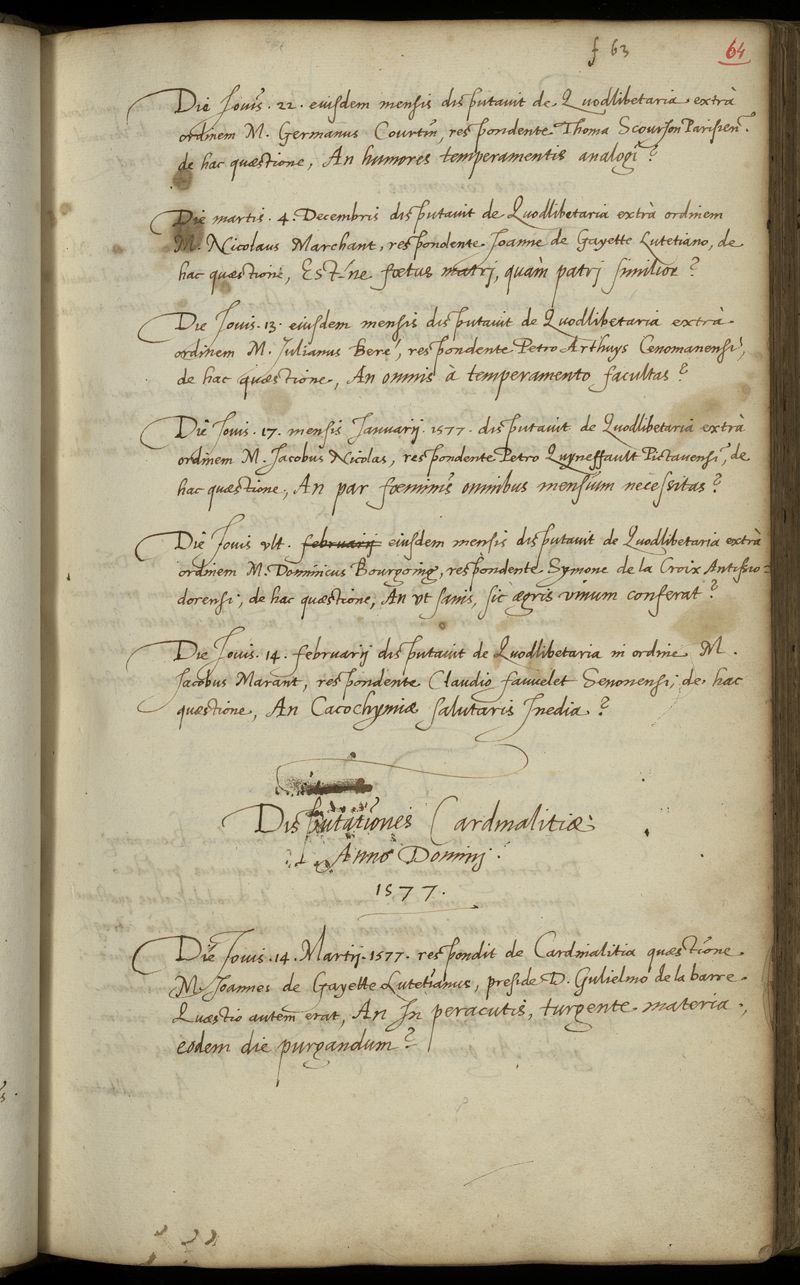 f 63 64
Die Jouis . 22 . eiusdem mensis disputauit de Quodlibetaria extrà
ordinem M. Germanus Courtin, respondente Thoma Scourjon Parisien.
de hac quæstione, An humores temperamentis analogi ?
Die martis . 4 . Decembris disputauit de Quodlibetaria extrà ordinem
M. Nicolaus Marchant, respondente Joanne de Gayette Lutetiano, de
hac quæstione, Est-ne fœtus matrj, quàm patrj similior ?
Die Jouis . 13 . eiusdem mensis disputauit de Quodlibetaria extrà
ordinem M. Julianus Bere, respondente Petro Arthuys Cenomanensi,
de hac quæstione, An omnis à temperamento facultas ?
Die Jouis . 17 . mensis Januarij . 1577 . disputauit de Quodlibetaria extrà
ordinem M. Jacobus Nicolas, respondente Petro Quyneffault Pictauensi, de
hac quæstione, An par fœminis omnibus mensium necessitas ?
Die Jouis vlt . februarij eiusdem mensis disputauit de Quodlibetaria extrà
ordinem M. Dominicus Bourgoing, respondente Symone de la Croix Antissio=
dorensi, de hac quæstione, An vt sanis, sic ægris vinum conferat ?
Die Jouis . 14 . februarij disputauit de Quodlibetaria in ordine M .
Jacobus Marant, respondente Claudio fauuelet Senonensi, de hac
quæstione, An Cacochymiæ salutaris Inedia ?
Disputationes Cardinalitiæ
Anno Dominj .
1577 .
Die Jouis . 14 . Martij . 1577 . respondit de Cardinalitia quæstione
M. Joannes de Gayette Lutetianus, preside D. Gulielmo de la barre
Quæstio autem erat, An In peracutis, turgente materia ,
eodem die purgandum ?